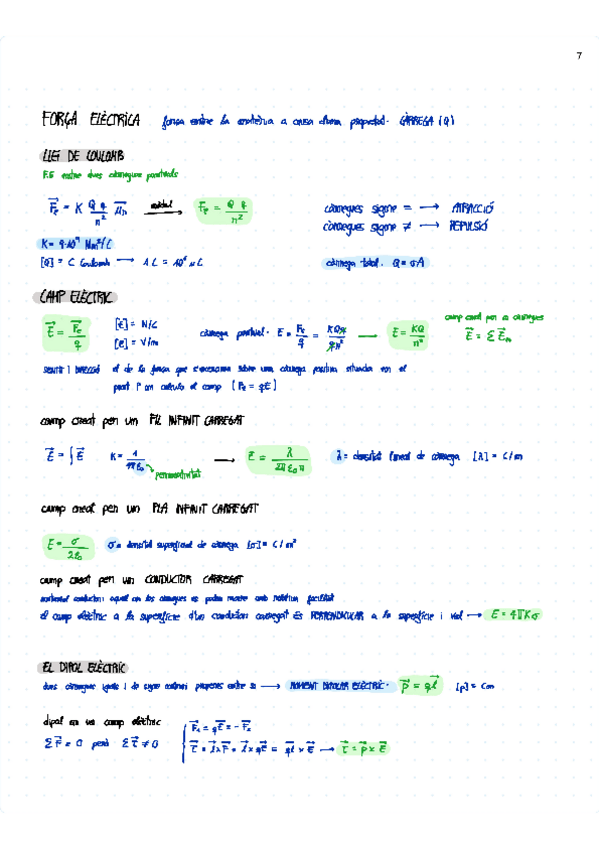 7
FORÇA ELÈCTRICA força entre la matèria a causa d'una propietat. CÀRREGA (Q)
LLEI DE COULOMB
F.E entre dues càrregues puntuals
F⃗e = K Q q / r² μ⃗r mòdul → Fe = Q q / r² càrregues signe = → ATRACCIÓ
càrregues signe ≠ → REPULSIÓ
K = 9·10⁹ Nm²/C
[Q] = C Coulombs → 1 C = 10⁶ μC càrrega total. Q = σA
CAMP ELÈCTRIC
camp creat per n càrregues
E⃗ = F⃗e / q [E] = N/C càrrega puntual. E = Fe / q = KQq / qr² → E = KQ / r² E⃗ = Σ E⃗m
[E] = V/m
SENTIT I DIRECCIÓ el de la força que s'exerceix sobre una càrrega positiva situada en el
punt P on calculo el camp (Fe = qE)
camp creat per un FIL INFINIT CARREGAT
E⃗ = ∫ E⃗ K = 1 / 4πε₀ → E = λ / 2πε₀r λ = densitat lineal de càrrega [λ] = C/m
permitivitat
camp creat per un PLA INFINIT CARREGAT
E = σ / 2ε₀ σ = densitat superficial de càrrega [σ] = C/m²
camp creat per un CONDUCTOR CARREGAT
material conductor: aquell on les càrregues es poden moure amb relativa facilitat
el camp elèctric a la superfície d'un conductor carregat és PERPENDICULAR a la superfície i val → E = 4πKσ
EL DIPOL ELÈCTRIC
dues càrregues iguals i de signe contrari properes entre si → MOMENT DIPOLAR ELÈCTRIC. p⃗ = ql⃗ [p] = Cm
dipol en un camp elèctric
ΣF⃗ = 0 però Στ⃗ ≠ 0 F⃗₁ = qE⃗ = -F⃗₂
τ⃗ = l⃗xF⃗ = l⃗xqE⃗ = ql⃗ x E⃗ → τ⃗ = p⃗ x E⃗